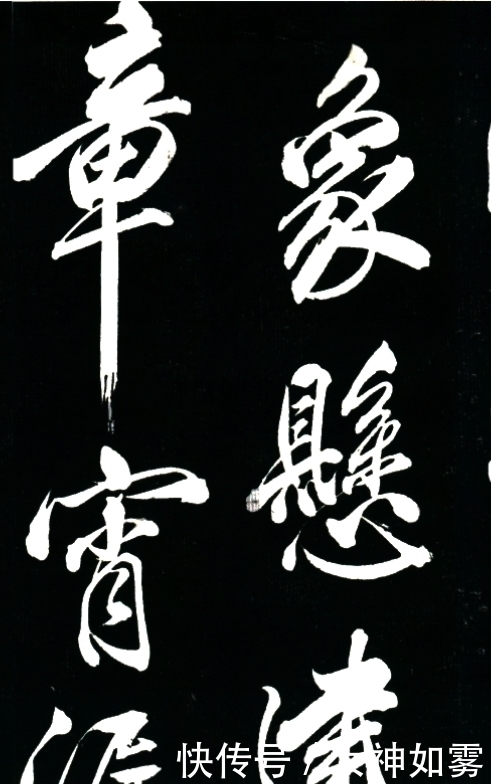 象懸
章宵
快传号 / 神如雾